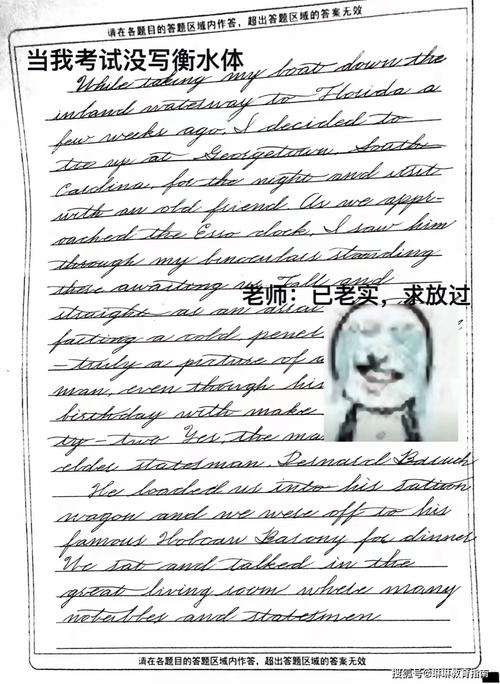 请在各题目的答题区域内作答，超出答题区域的答案无效
当我考试没写衡水体
While taking my boat down the
inland waterway to Florida a
few weeks ago, I decided to
tie up at Georgetown, South
Carolina, for the night and visit
with an old friend. As we appr-
oached the Esso dock, I saw him
through my binoculars standing
there awaiting us. Tall and
老师：已老实，求放过
straight as an arrow
facing a cold penet
-truly a picture of a
man, even though his
birthday with make
ty-two Yes, the ma
elder statesman, Bernard Baruch
He loaded us into his sation
wagon and we were off to his
famous Hobcaw Barony for dinner
We sat and talked in the
great living room where many
notables and statesmen
请在各题目的答题区域内作答，超出答题区域的答案无效
搜狐号@琳琳教育指南